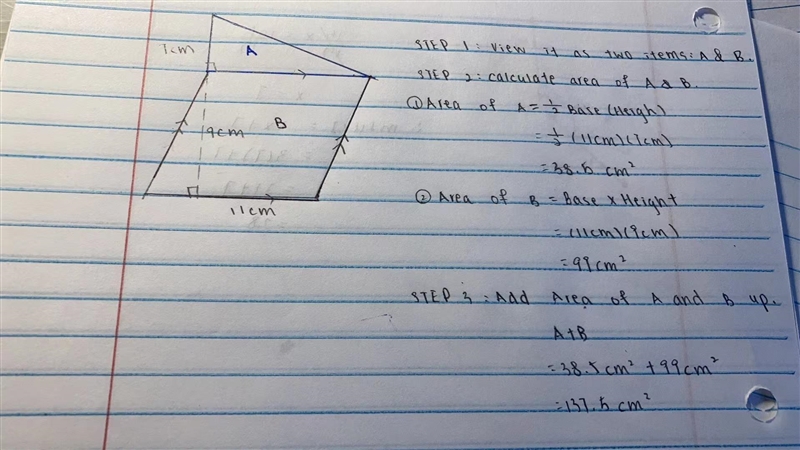 7cm
A
9cm
B
11cm
STEP 1: View it as two items: A & B.
STEP 2: calculate area of A & B.
① Area of A = 1/2 Base (Heigh)
= 1/2 (11cm)(7cm)
= 38.5 cm²
② Area of B = Base × Height
= (11cm)(9cm)
= 99cm²
STEP 3: Add Area of A and B up.
A+B
= 38.5cm² + 99cm²
= 137.5 cm²